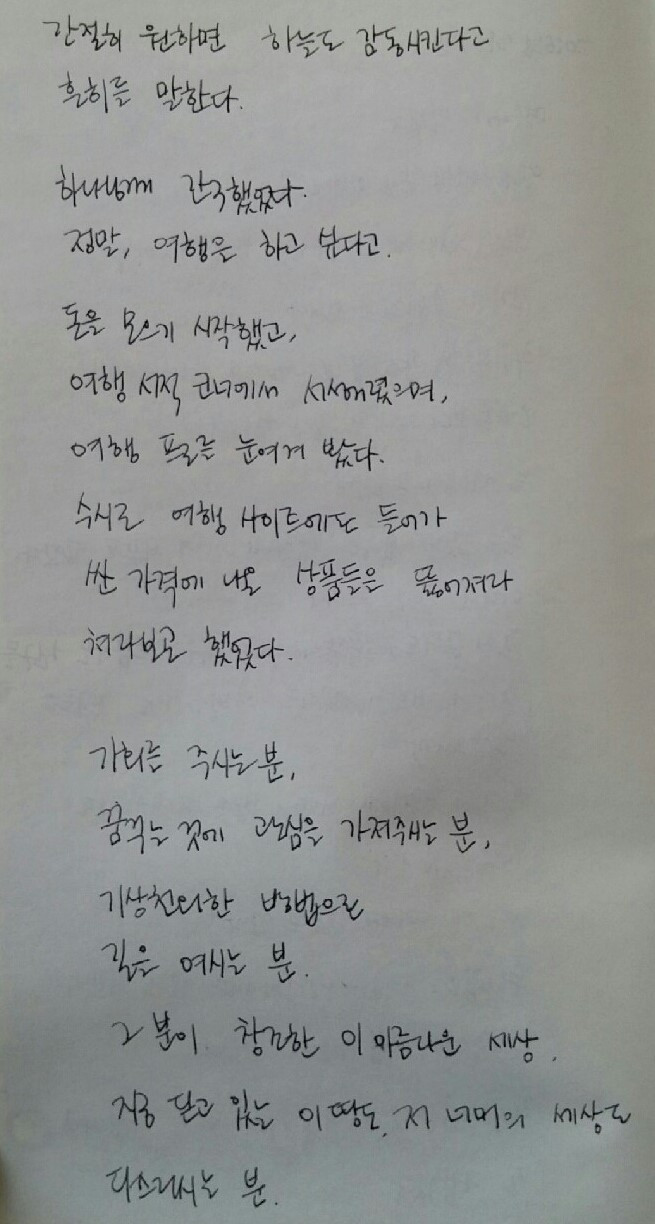 간절히 원하면 하늘도 감동시킨다고
흔히들 말한다.
하나님께 간구했었다.
정말, 여행을 하고 싶다고.
돈을 모으기 시작했고,
여행 서적 코너에서 서성거렸으며,
여행 프로를 눈여겨 봤다.
수시로 여행 사이트에도 들어가
싼 가격에 나온 상품들을 뚫어져라
쳐다보곤 했었다.
기회를 주시는 분,
꿈꾸는 것에 관심을 가져주시는 분,
기상천외한 방법으로
길을 여시는 분.
그 분이 창조한 이 아름다운 세상.
지금 딛고 있는 이 땅도, 저 너머의 세상도
다스리시는 분.